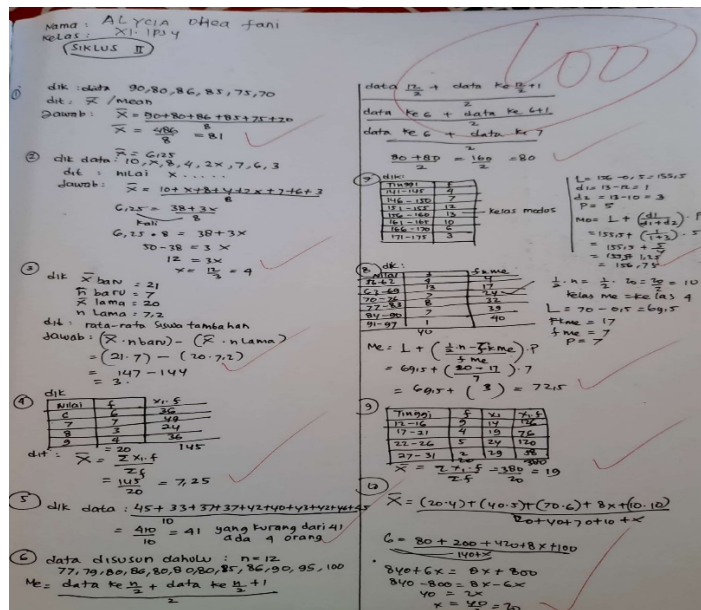 Nama : ALYCIA Dhea fani
Kelas : XI. IPS 4
SIKLUS II
100
① dik : data 90, 80, 86, 85, 75, 70
dit : x̄ /mean
Jawab : x̄ = 90+80+86+85+75+70
x̄ = 486/8 = 81
② dik data : x̄ = 6,25
10, x, 8, 4, 2x, 7, 6, 3
dit : nilai x . . . .
Jawab : x̄ = 10+x+8+4+2x+7+6+3 / 8
6,25 = 38+3x / 8
kali
6,25 . 8 = 38+3x
50-38 = 3x
12 = 3x
x = 12/3 = 4
③ dik x̄ baru = 21
n baru = 7
x̄ lama = 20
n lama = 7,2
dit : rata-rata siswa tambahan
Jawab : (x̄ . n baru) - (x̄ . n lama)
= (21 . 7) - (20 . 7,2)
= 147 - 144
= 3.
④ dik
Nilai f xi . f
6 6 36
7 7 49
8 3 24
9 4 36
= 20 145
dit : x̄ = Σ xi . f / Σf
= 145/20 = 7,25
⑤ dik data : 45+33+37+37+42+40+43+42+46+45 / 10
= 410/10 = 41 yang kurang dari 41
ada 4 orang
⑥ data disusun dahulu : n=12
77, 79, 80, 86, 80, 80, 80, 85, 86, 90, 95, 100
Me = data ke n/2 + data ke n/2 + 1 / 2
data 12/2 + data ke 12/2 + 1 / 2
data ke 6 + data ke 6+1 / 2
data ke 6 + data ke 7 / 2
80+80 / 2 = 160/2 = 80
7 dik:
Tinggi f
141-145 4
146-150 7
151-155 12
156-160 13 kelas modos
161-165 10
166-170 6
171-175 3
L = 156-0,5 = 155,5
d1 = 13-12 = 1
d2 = 13-10 = 3
P = 5
Mo = L + (d1 / d1+d2) . P
= 155,5 + (1 / 1+3) . 5
= 155,5 + 5/4
= 155,5 1,25
= 156,75
⑧ dik:
Nilai f fkme
56-62 4
63-69 13 17
70-76 7 24
77-83 8 32
84-90 7 39
91-97 1 40
40
½ . n = ½ . 20 = 20/2 = 10
Kelas me = kelas 4
L = 70 - 0,5 = 69,5
Fkme = 17
fme = 7
P = 7
Me = L + (½.n - Σfkme / fme) . P
= 69,5 + (20-17 / 7) . 7
= 69,5 + (3) = 72,5
⑨
Tinggi f xi xi.f
12-16 9 14 126
17-21 4 19 76
22-26 5 24 120
27-31 2 29 58
20 380
x̄ = Σ xi . f / Σf = 380/20 = 19
⑩
x̄ = (20.4)+(40.5)+(70.6)+8x+(10.10) / 20+40+70+10+x
6 = 80+200+420+8x+100 / 140+x
840+6x = 8x+800
840-800 = 8x-6x
40 = 2x
x = 40/2 = 20